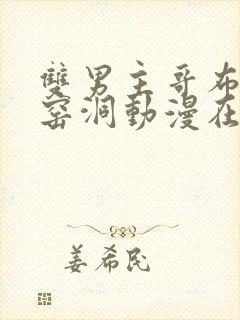 雙男主哥布
窑洞動漫在
姜希民